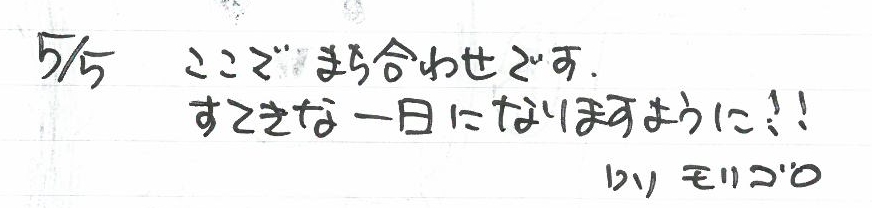 5/5 ここで まち合わせです.
すてきな一日になりますように!!
by モリゴロ